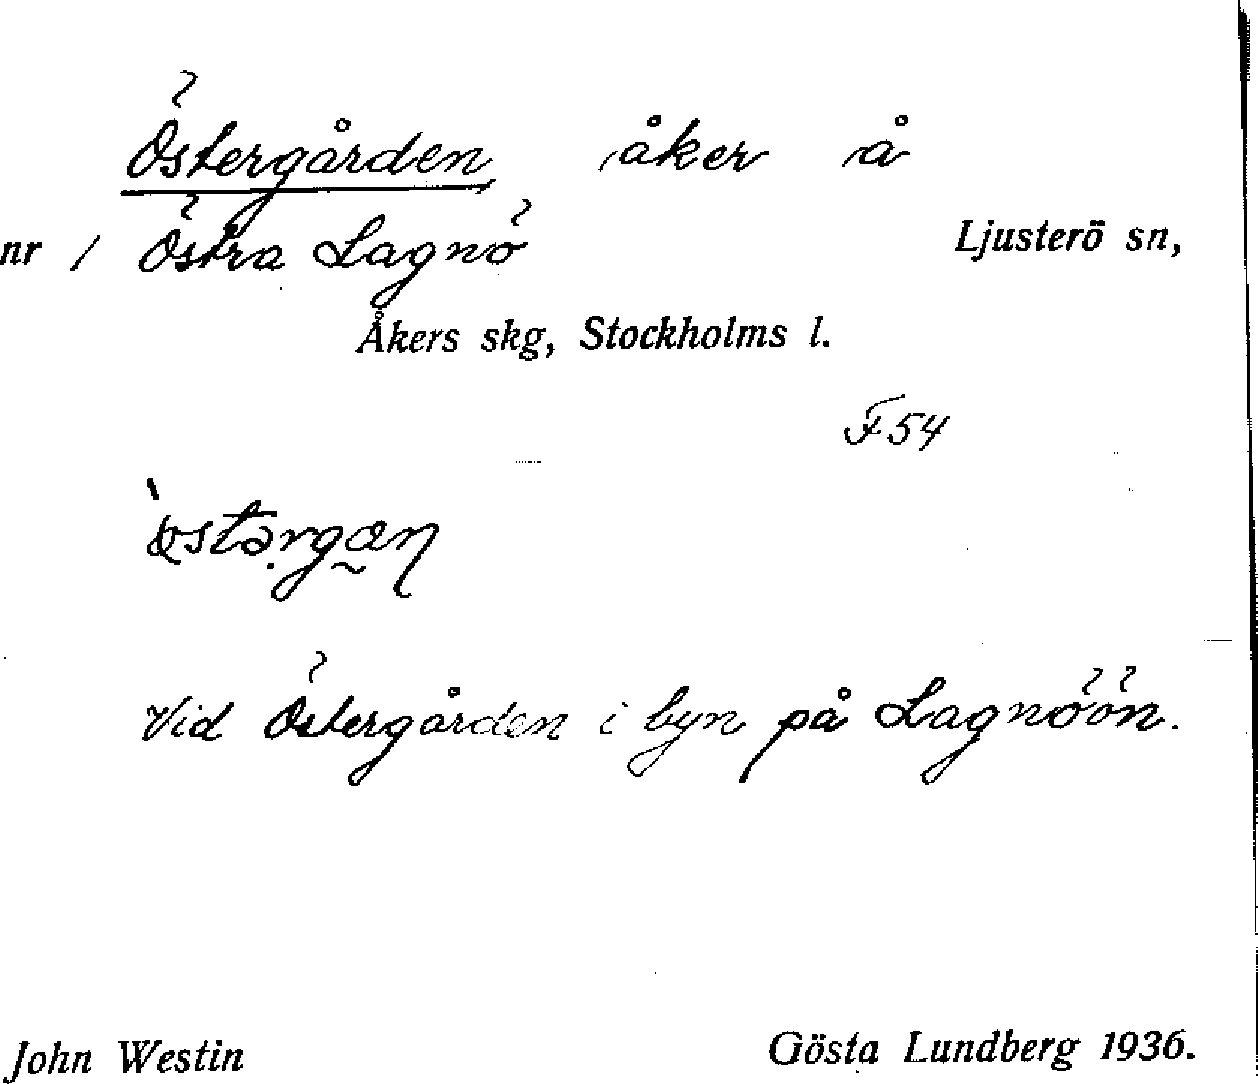 Östergården åker å
nr 1 Östra Lagnö Ljusterö sn,
Åkers skg, Stockholms l.
F 54
Vid Östergården i byn på Lagnöön.
John Westin Gösta Lundberg 1936.